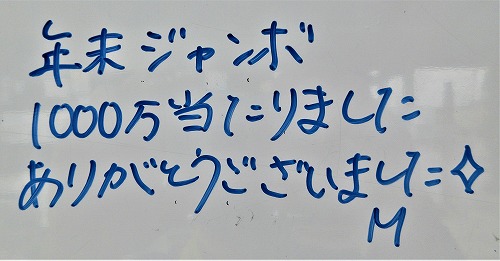 年末ジャンボ
1000万当たりました
ありがとうございました✧
M